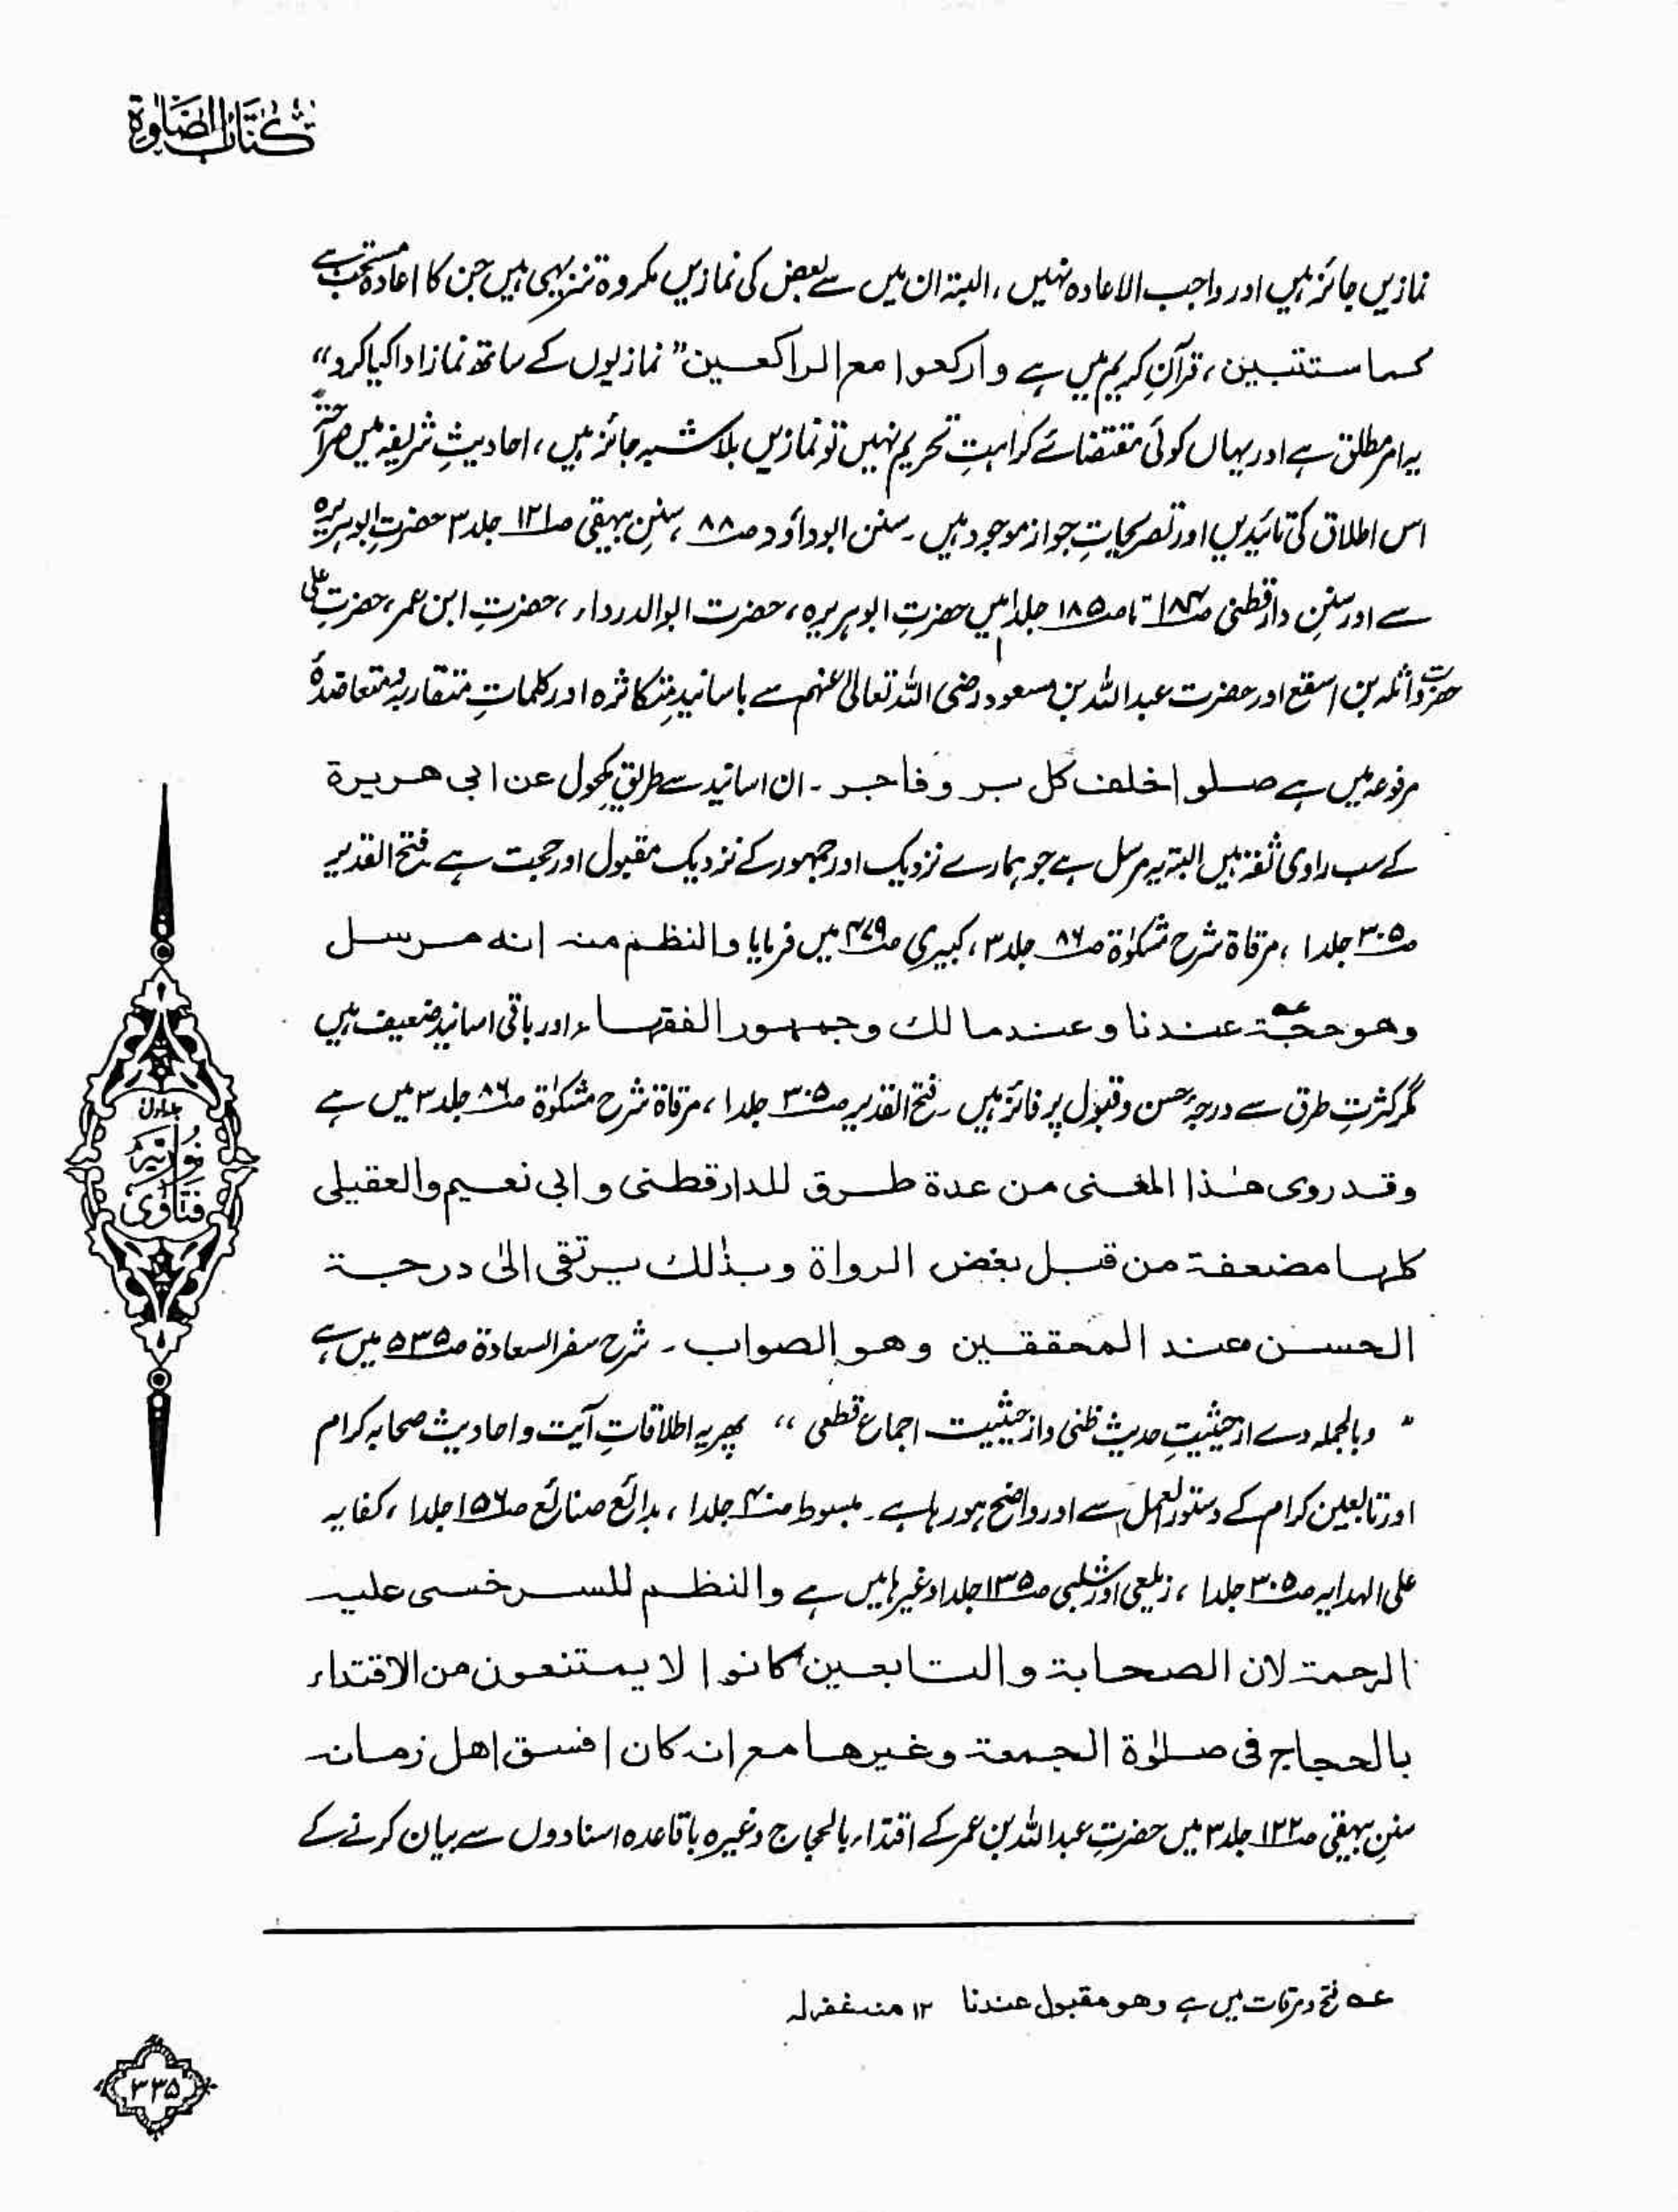 كتاب الصلوٰة
نمازیں جائز ہیں اور واجب الاعادہ نہیں، البتہ ان میں سے بعض کی نمازیں مکروہ تنزیہی ہیں جن کا اعادہ مستحب ہے
كما ستتبين، قرآنِ کریم میں ہے واركعوا مع الراكعين” نمازیوں کے ساتھ نماز ادا کیا کرو“
یہ امر مطلق ہے اور یہاں کوئی مقتضائے کراہتِ تحریم نہیں تو نمازیں بلا شبہ جائز ہیں، احادیثِ شریفہ میں صراحۃً
اس اطلاق کی تائیدیں اور تصریحاتِ جواز موجود ہیں۔ سنن ابوداؤد صـ۸۸، سننِ بیہقی صـ۱۲۱ جلد ۳ حضرتِ ابوہریرہ
سے اور سننِ دارقطنی صـ۱۸۴ تا صـ۱۸۵ جلد ۱ میں حضرتِ ابوہریرہ، حضرت ابوالدرداء، حضرتِ ابن عمر، حضرتِ علی
حضرت واثلہ بن اسقع اور حضرت عبداللہ بن مسعود رضی اللہ تعالیٰ عنہم سے باسانیدِ متکاثرہ اور کلماتِ متقاربہ متعاضدہ
مرفوعہ میں ہے صلوا خلف كل بر وفاجر ۔ ان اسانید سے طریقِ مکحول عن ابى هريرة
کے سب راوی ثقہ ہیں البتہ یہ مرسل ہے جو ہمارے نزدیک اور جمہور کے نزدیک مقبول اور حجت ہے۔ فتح القدیر
صـ۳۰۵ جلد ۱، مرقاۃ شرح مشکوٰۃ صـ۸۶ جلد ۳، کبیری صـ۴۷۹ میں فرمایا والنظم منه انه مرسل
وهو حجة عـه عندنا وعند مالك وجمهور الفقهاء اور باقی اسانید ضعیف ہیں
مگر کثرتِ طرق سے درجۂ حسن و قبول پر فائز ہیں ۔ فتح القدیر صـ۳۰۵ جلد ۱، مرقاۃ شرح مشکوٰۃ صـ۸۶ جلد ۳ میں ہے
وقد روى هٰذا المغنى من عدة طرق للدارقطنى وابى نعيم والعقيلى
كلها مضعفة من قبل بعض الرواة وبذٰلك يرتقى الىٰ درجة
الحسن عند المحققين وهو الصواب ۔ شرح سفر السعادۃ صـ۵۳۵ میں ہے
” وبالجملہ وے از حیثیتِ حدیث ظنی واز حیثیت اجماع قطعی “ پھر یہ اطلاقاتِ آیت و احادیث صحابہ کرام
اور تابعین کرام کے دستور العمل سے اور واضح ہو رہا ہے ۔ مبسوط صـ۴۰ جلد ۱، بدائع صنائع صـ۱۵۶ جلد ۱، کفایہ
علی الہدایہ صـ۳۰۵ جلد ۱، زیلعی اور شلبی صـ۱۳۵ جلد ۱ وغیرہا میں ہے والنظم للسرخسى عليه
الرحمة لان الصحابة والتابعين كانوا لا يمتنعون من الاقتداء
بالحجاج فى صلوٰة الجمعة وغيرها مع انه كان افسق اهل زمانه
سننِ بیہقی صـ۱۲۲ جلد ۳ میں حضرتِ عبداللہ بن عمر کے اقتداء بالحجاج وغیرہ باقاعدہ اسنادوں سے بیان کرنے کے
عـه فتح و مرقات میں ہے وهو مقبول عندنا ۱۲ منه غفرله
جلد اول
نوریہ
فتاوىٰ
۳۳۵